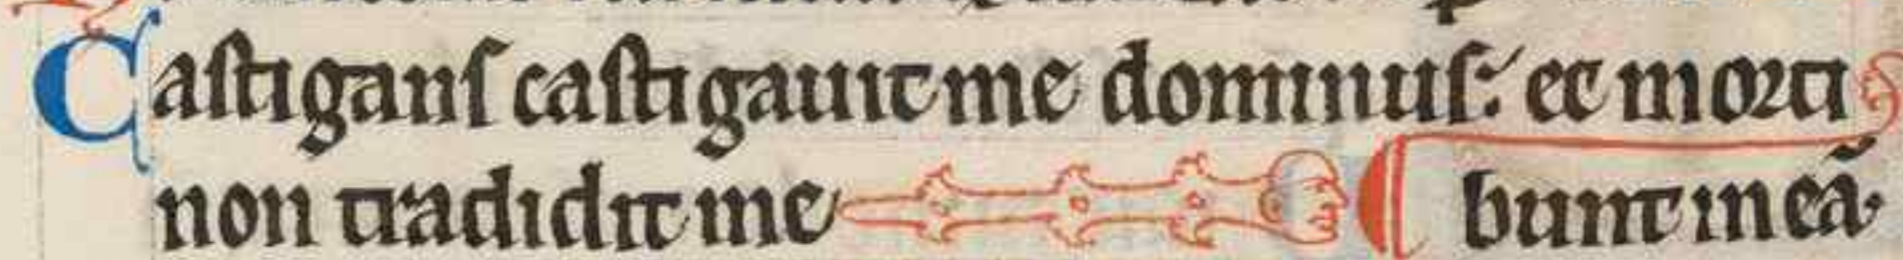 Castigans castigauit me dominus: et morti
non tradidit me bunt in eā.